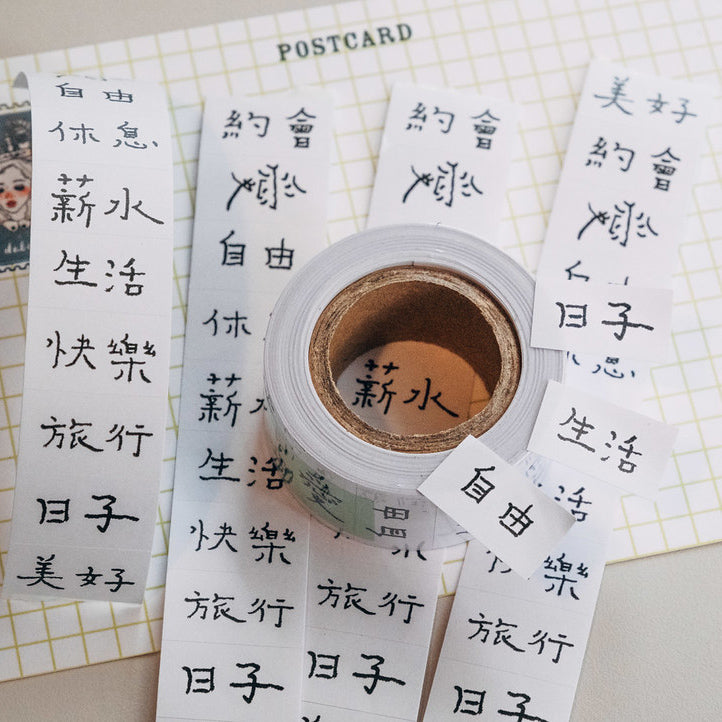 POSTCARD
自由
休息
薪水
生活
快樂
旅行
日子
美好
約會
自由
休
薪
生活
快樂
旅行
日子
約會
旅行
日子
美好
約會
樂
旅行
日子
薪水
日子
生活
自由